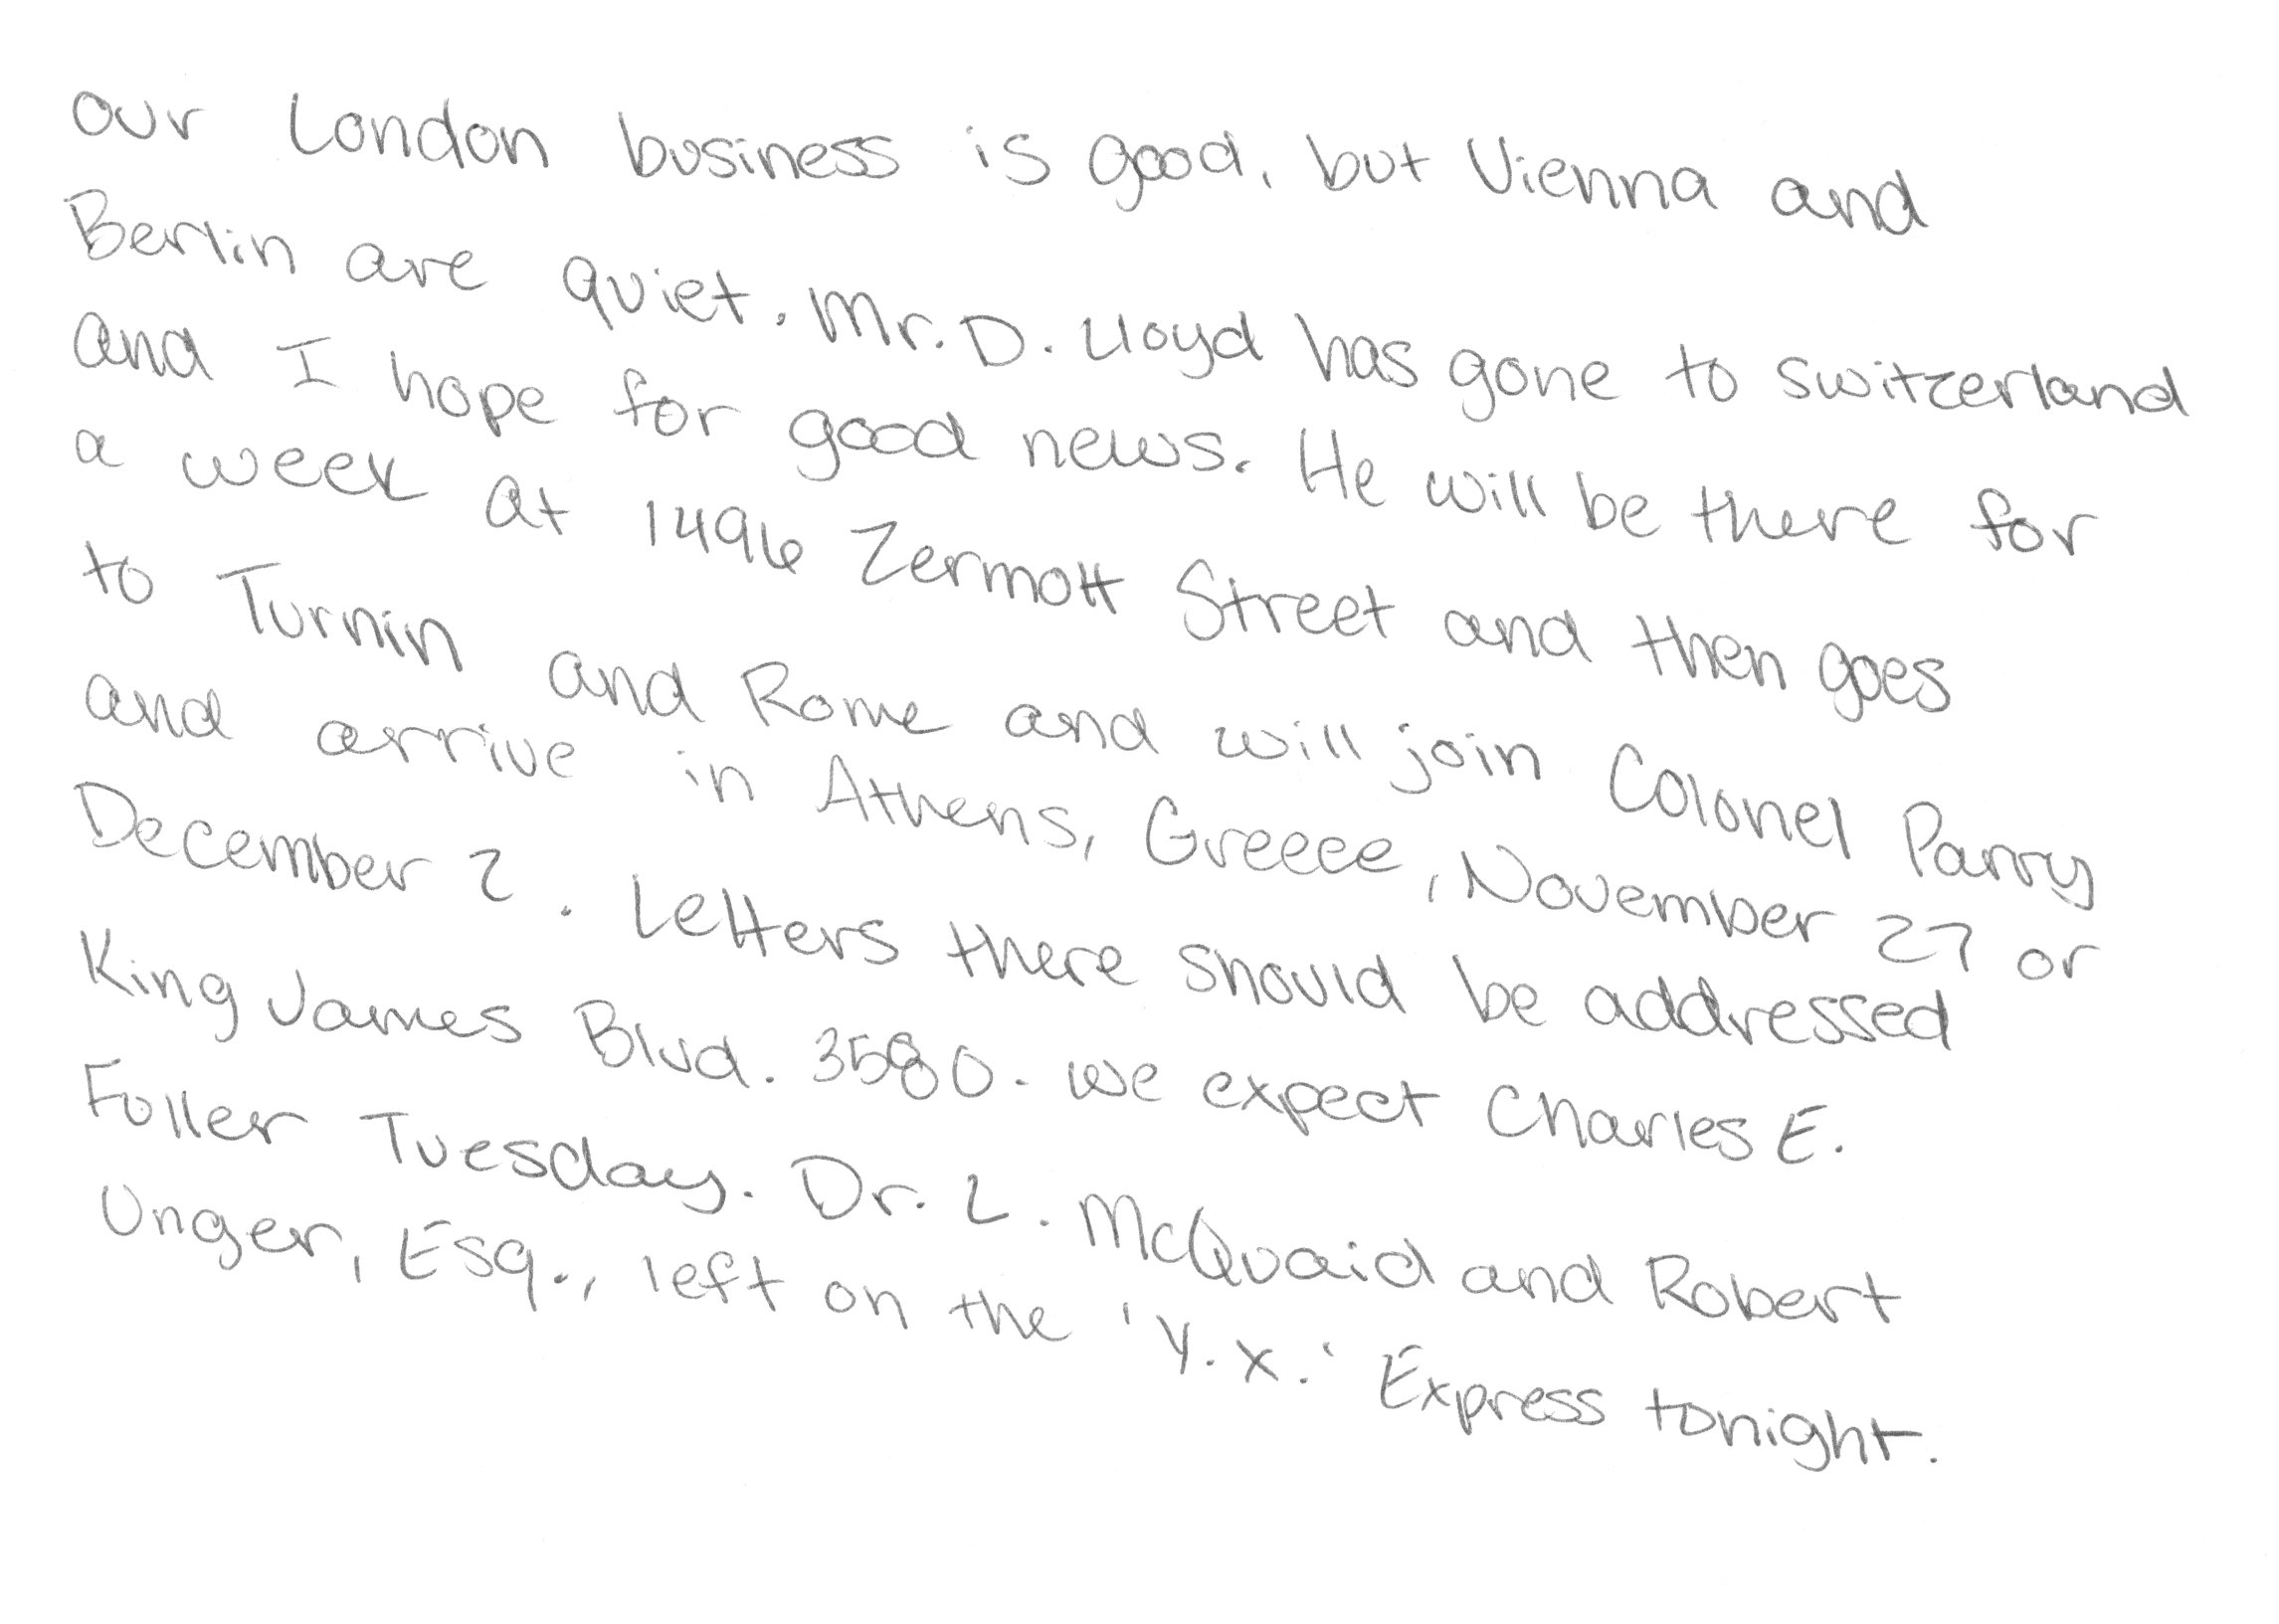 Our London business is good, but Vienna and
Berlin are quiet. Mr. D. Lloyd has gone to Switzerland
and I hope for good news. He will be there for
a week at 1496 Zermott Street and then goes
to Turnin and Rome and will join Colonel Parry
and arrive in Athens, Greece, November 27 or
December 2. Letters there should be addressed
King James Blvd. 3580. We expect Charles E.
Fuller Tuesday. Dr. L. McQuaid and Robert
Unger, Esq., left on the 'Y.X.' Express tonight.